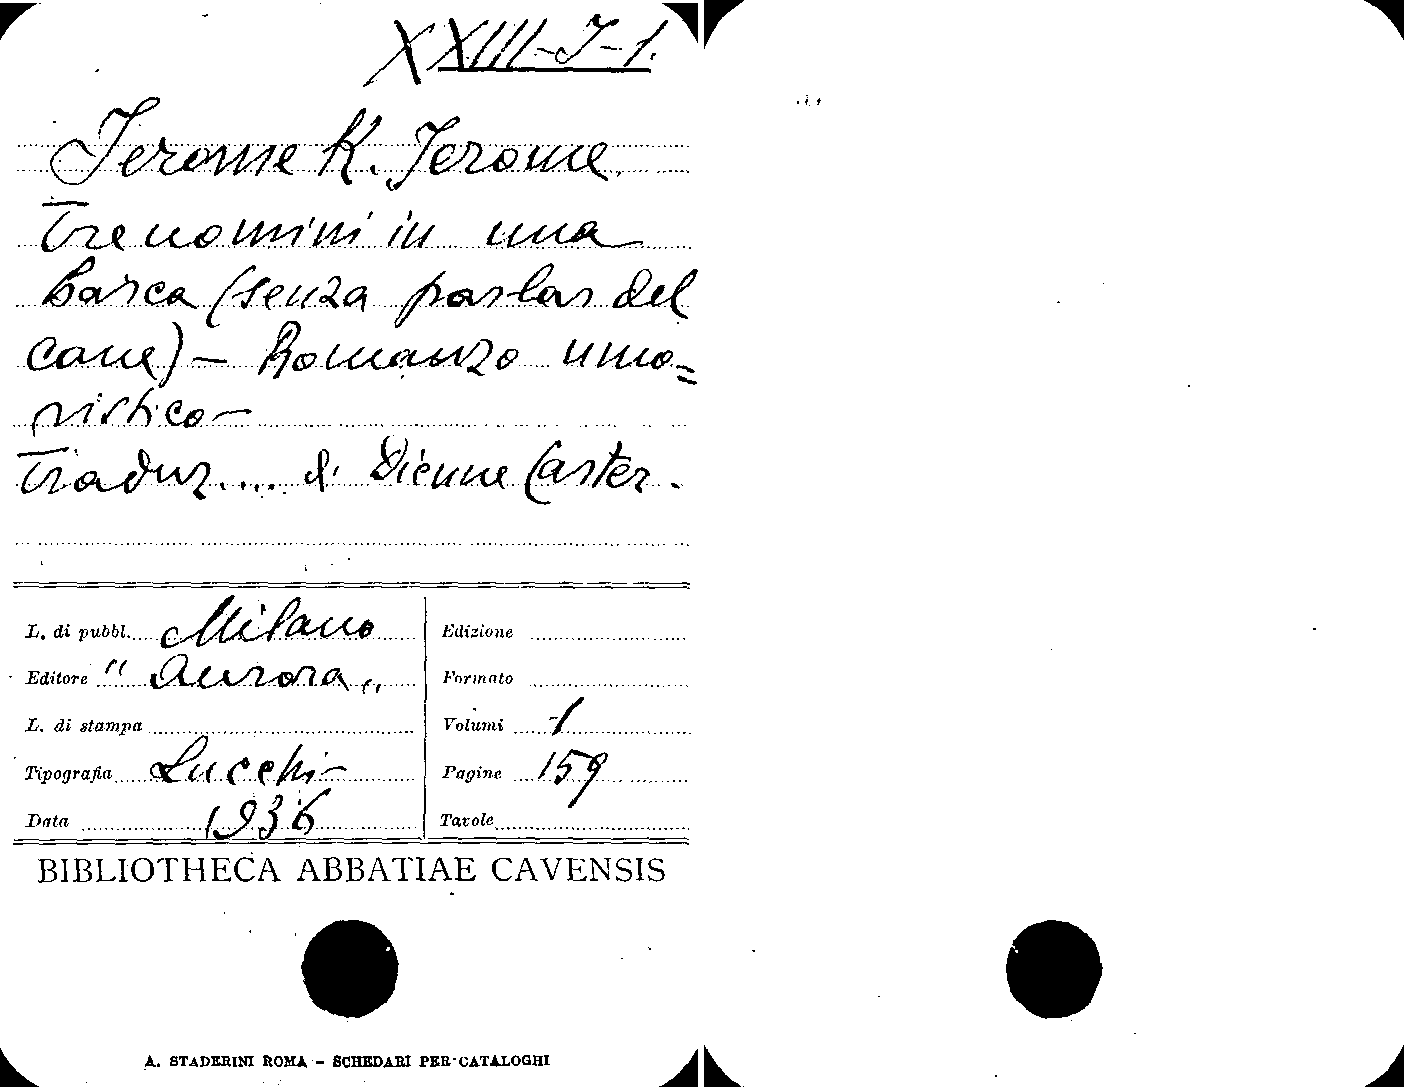 XXIII-J-1.
Jerome K. Jerome.
Tre uomini in una
barca (senza parlar del
cane) - Romanzo umo=
ristico -
Traduz.... di Dienne Carter.
L. di pubbl. Milano
Editore "Aurora"
L. di stampa
Tipografia Lucchi -
Data 1936
Edizione
Formato
Volumi 1
Pagine 159
Tavole
BIBLIOTHECA ABBATIAE CAVENSIS
A. STADERINI ROMA - SCHEDARI PER CATALOGHI